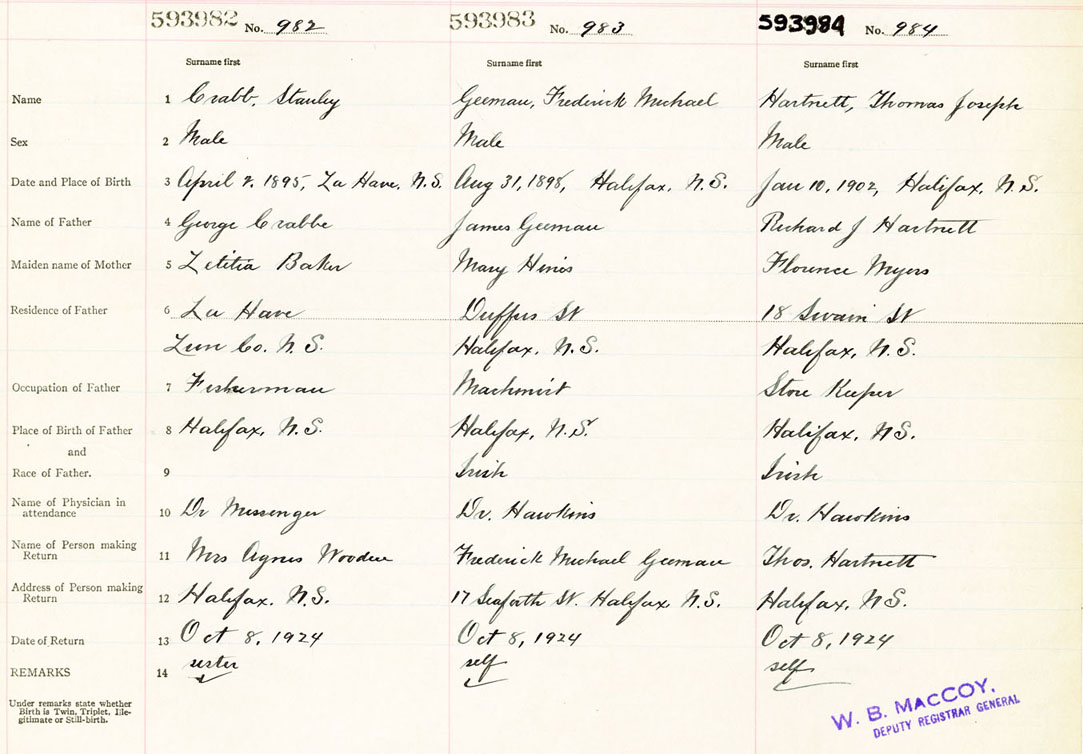 593982 No. 982 593983 No. 983 593984 No. 984
Surname first Surname first Surname first
Name 1 Crabb, Stanley Geeman, Frederick Michael Hartnett, Thomas Joseph
Sex 2 Male Male Male
Date and Place of Birth 3 April 2. 1895, La Have, N.S. Aug 31, 1898, Halifax, N.S. Jan 10, 1902, Halifax, N.S.
Name of Father 4 George Crabbe James Geeman Richard J Hartnett
Maiden name of Mother 5 Letitia Baker Mary Hines Florence Myers
Residence of Father 6 La Have Duffus St 18 Swain St
Lun Co. N.S. Halifax, N.S. Halifax, N.S.
Occupation of Father 7 Fisherman Machinist Store Keeper
Place of Birth of Father 8 Halifax, N.S. Halifax, N.S. Halifax, NS.
and
Race of Father. 9 Irish Irish
Name of Physician in
attendance 10 Dr Messenger Dr. Hawkins Dr. Hawkins
Name of Person making
Return 11 Mrs Agnes Wooden Frederick Michael Geeman Thos. Hartnett
Address of Person making
Return 12 Halifax. N.S. 17 Seaforth St. Halifax, N.S. Halifax, NS.
Date of Return 13 Oct 8, 1924 Oct 8, 1924 Oct 8, 1924
REMARKS 14 sister self self
Under remarks state whether
Birth is Twin, Triplet, Ille-
gitimate or Still-birth.
W. B. MACCOY,
DEPUTY REGISTRAR GENERAL